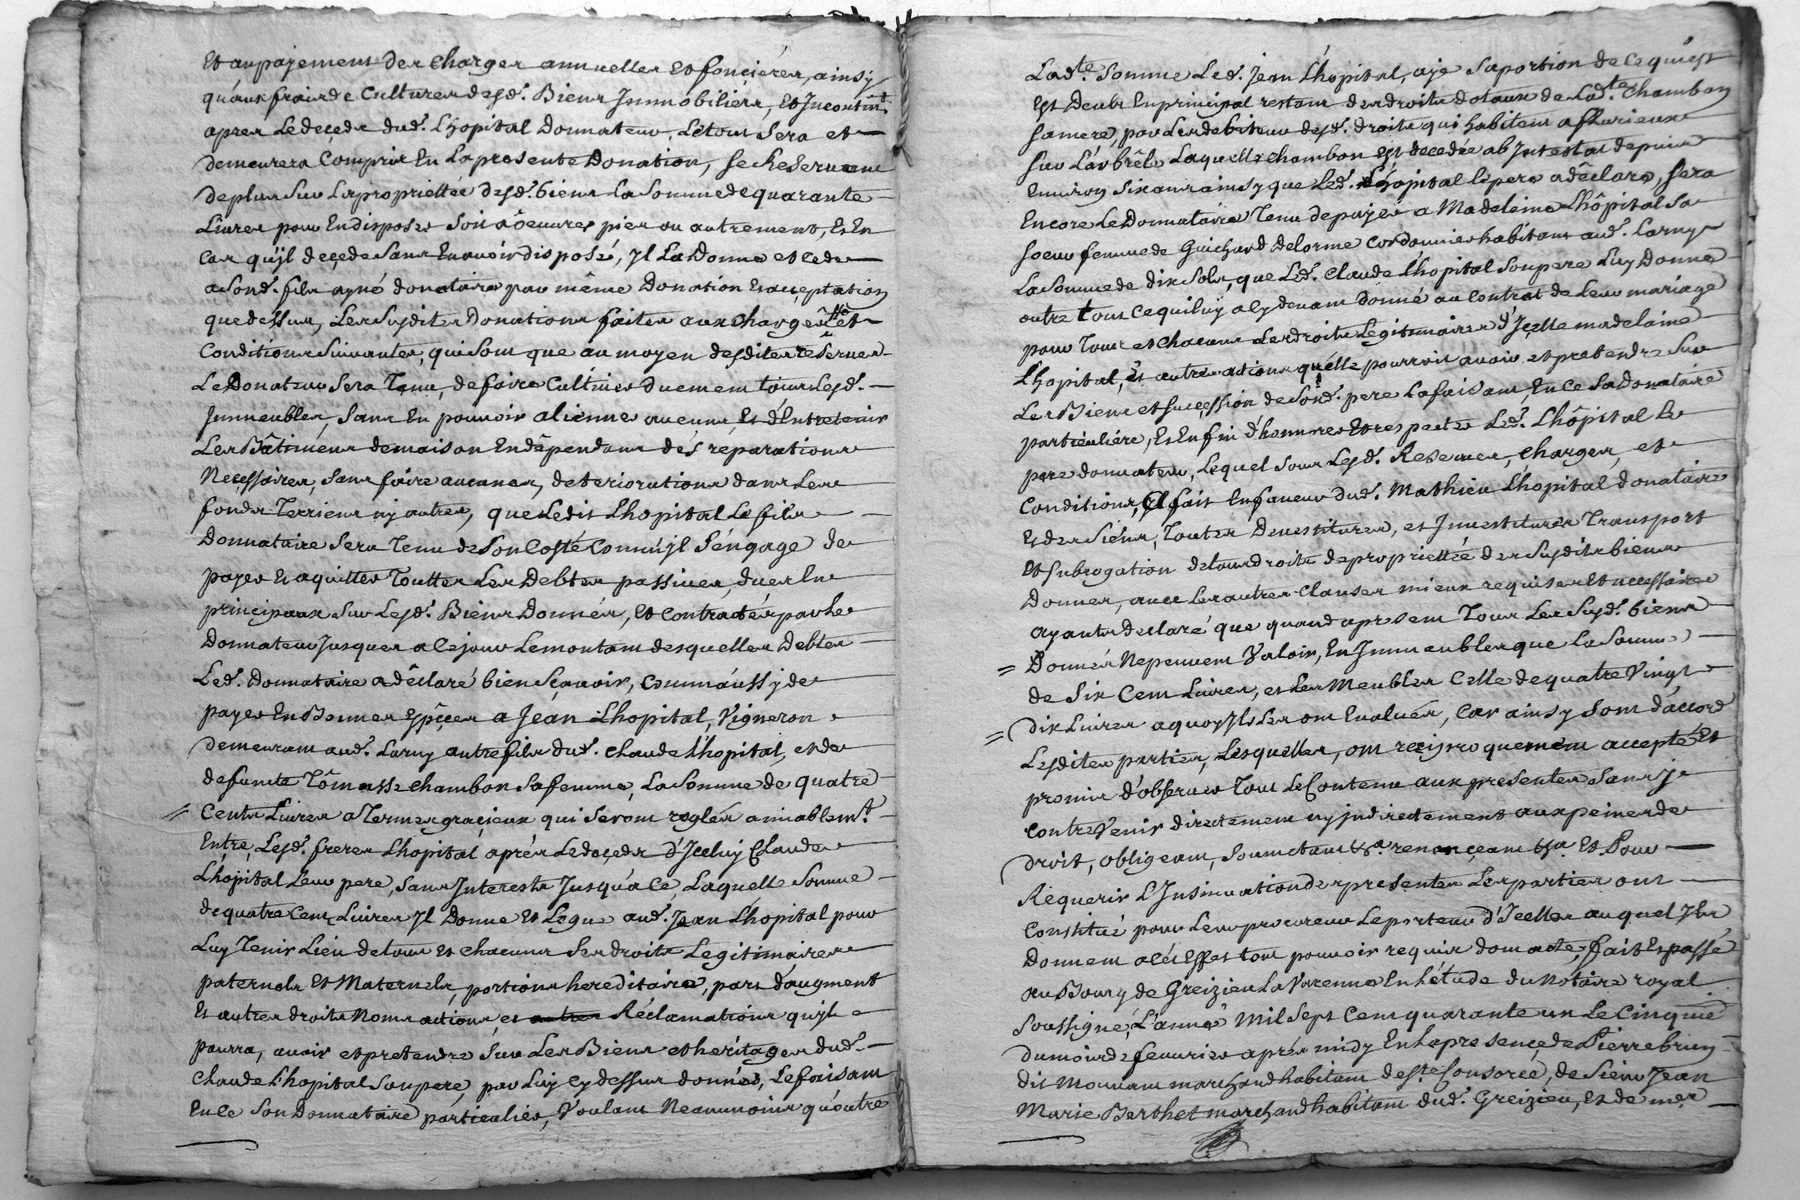 Et au payement des charges annuelles et foncières, ainsy
qu'aux frais de Cultures desd. Biens Immobiliers, Et Incontint.
apres Le deçeds dud. Lhopital Donnateur, Le tout Sera et
demeurera Compris En La presente Donation, Se Reservant
de plus Sur La proprietée desd. biens La Somme de quarante
Livres pour En disposer Soit à oeuvres pies ou autrement, Et En
Cas qu'jl deçede Sans En avoir disposé, jl La Donne et cede
a Sond. fils ayné donataire par même Donation Et acçeptation
que dessus, Les Susdites Donations faites aux charges et
Conditions Suivantes, qui Sont que au moyen desdites reserves
Le Donateur Sera Tenu, de faire Cultiver duement tous Lesd.
Immeubles, Sans En pouvoir aliener aucuns Et d'Entretenir
Les Bâtiments de maison En dêpendans dés réparations
Neçessaires, Sans faire aucunes, deteriorations dans Les
fonds Terriens ny autres, que Ledit Lhopital Le fils
Donnataire Sera Tenu de Son Costé Comm'jl S'éngage de
payer Et aquitter Touttes Les Debtes, passives, dues En
principaux Sur Lesd. Biens Donnés, Et Contractés par Le
Donnateur Jusques a Cejour Le montant desquelles Debtes
Led. Donnataire a dêclaré bien Sçavoir, Comm'áussy de
payer En Bonnes espêçes a Jean Lhopital, Vigneron
demeurant aud. Larny autre fils dud. Claude Lhopital, et de
defunte Tômasse chambon Sa femme, La Somme de quatre
Cents Livres a Termes graçieux qui Seront reglés amiablemt.
Entre, Lesd. freres Lhopital aprés Le deçeds d'Iceluy Claude
Lhôpital Leur pere, Sans Interests Jusqu'a Ce, Laquelle Somme
de quatre Cent Livres Jl Donne Et Legue aud. Jean Lhopital pour
Luy Tenir Lieu de tous et chacuns Ses droits Legitimaires
paternels Et Maternels, portions hereditaire, part d'augment
Et autres droits Noms actions, et autres Réclamations qu'jl
pourra, avoir et pretendre Sur Les Biens et héritages dud.
Claude Lhopital Son pere, par Luy Cy dessus donnés, Le faisant
En Ce Son Donnataire párticulier, Voulant Neanmoins qu'outre
Lad.te Somme Led. Jean Lhôpital, aje Sa portion de Ce qui est
Est Deub En principal restant des droits dotaux de Lad.te chambon
Sa mere, par Les debiteurs desd. droits qui habitent a fLurieux
Sur L'arbrêle Laquelle chambon est decedée ab Intestat depuis
Environ Six ans ainsy que Led. Lhôpital Le pere a dêclaré, Sera
Encore Le Donnataire Tenu de payer a Madeleine Lhôpital Sa
soeur femme de Guichard delorme Cordonnier habitant aud. Larny
La Somme de dix Sols, que Led. Claude Lhopital Son pere Luy Donne
outre tout Ce qu'il luy a Cy devant donné au Contrat de Leur mariage
pour Tous et chacuns Les droits Legitimaires d'Içelle madelaine
Lhopital, ét autre actions qu'elle pourroit avoir et pretendre Sur
Les Biens et Suçession de Sond. pere La faisant, En Ce Sa Donataire
particuliére, Et Enfin d'honnorer Et respecter Led. Lhôpital Le
pere donnateur, Lequel Sous Lesd. Reserves, charges, et
Conditions, a fait En faveur dud. Mathieu Lhopital donataire
Et des Siens, Toutes Devestitures, et Investitures Transport
Et Subrogation de tous droits de proprietée des Susdits biens
Donnes, avec Les autres Clauses mieux requises Et neçessaires
ayants declaré que quand apresent Tous Les Susd. biens
Donnés Ne peuvent Valoir, En Immeubles que La Somme
de Six Cent Livres, et Les Meubles Celle de quatre Vingt
dix Livres a quoy Jls Les ont Evalués, Car ainsy Sont d'accord
Lesdites parties, Lesquelles, ont reçiproquement accepté Et
promis d'observer Tout Le Contenu aux presentes Sans y
contrevenir directement ny jndirectement aux peines de
droit, obligeant, Soumetant &a. renonçeant &a. Et Pour
Réquerir L'Insinuation des presentes Les parties ont
Constitué pour Leur procureur Le porteur d'Icelles auquel Jls
Donnent a Cés Effet tout pouvoir requis dont acte, fait Et passé
au Bourg de Greizieu La Varenne En L'étude du Notaire royal
Soussigné, L'année Mil Sept Cent quarante un Le Cinquie
du mois de fevrier aprés midy En La presençe de Pierre brun
dit Mouvant marchand habitant de Ste. Consorce, de Sieur Jean
Marie Berthet marchand habitant dud. Greizieu, Et de mer